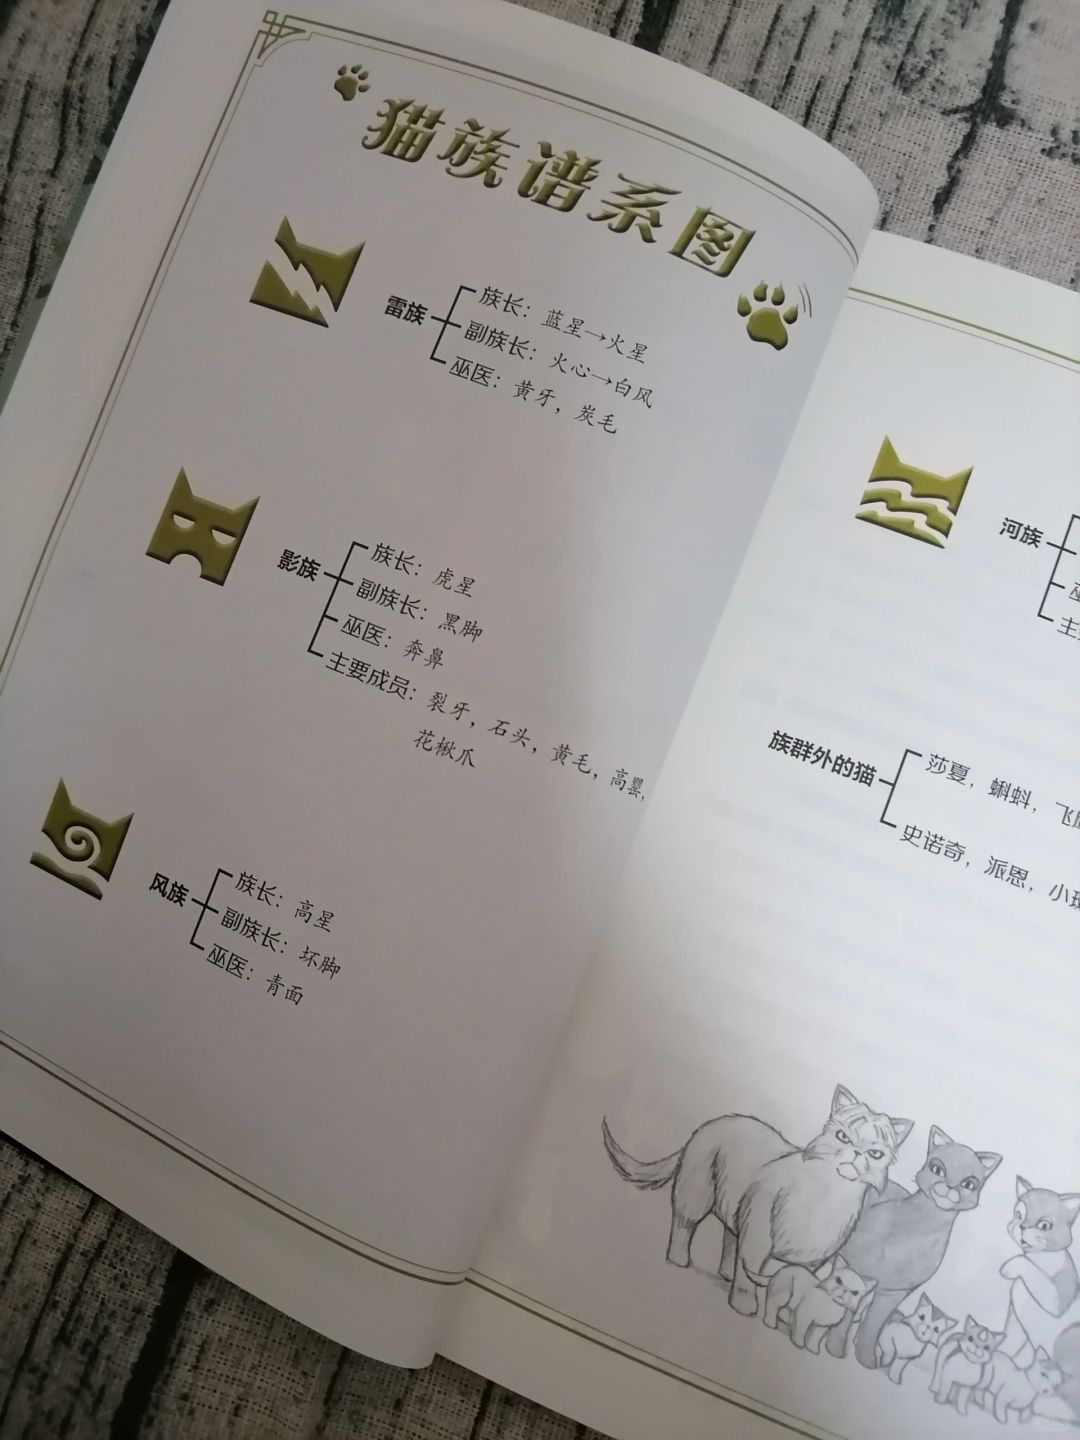 猫族谱系图
雷族
族长：蓝星→火星
副族长：火心→白风
巫医：黄牙，炭毛
影族
族长：虎星
副族长：黑脚
巫医：奔鼻
主要成员：裂牙，石头，黄毛，高罂，
花楸爪
风族
族长：高星
副族长：坏脚
巫医：青面
河族
族群外的猫
莎夏，蝌蚪，
史诺奇，派恩，